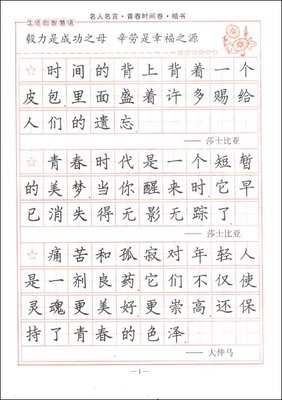 名人名言·青春时间卷·楷书
生活的智慧语
毅力是成功之母 辛劳是幸福之源
☆时间的背上背着一个
皮包里面盛着许多赐给
人们的遗忘
——莎士比亚
☆青春时代是一个短暂
的美梦当你醒来时它早
已消失得无影无踪了
——莎士比亚
☆痛苦和孤寂对年轻人
是一剂良药它们不仅使
灵魂更美好更崇高还保
持了青春的色泽
——大仲马
—1—